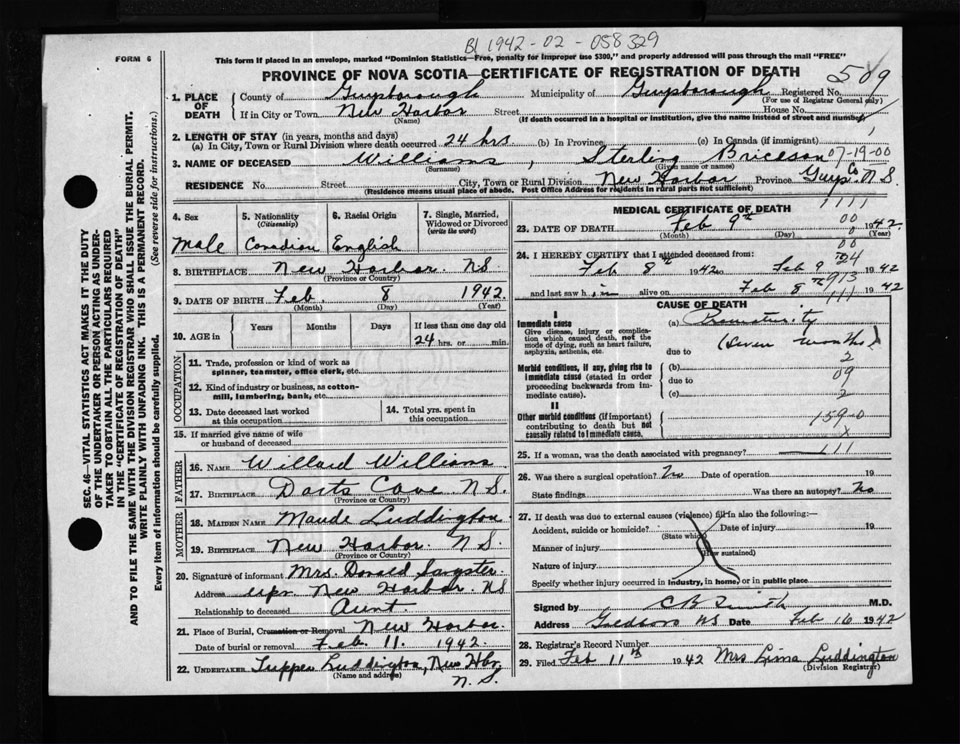 B1 1942-02-058329
FORM 6
This form if placed in an envelope, marked "Dominion Statistics—Free, penalty for improper use $300," and properly addressed will pass through the mail "FREE"
PROVINCE OF NOVA SCOTIA—CERTIFICATE OF REGISTRATION OF DEATH
509
1. PLACE OF DEATH
County of Guysborough Municipality of Guysborough Registered No.
(For use of Registrar General only)
If in City or Town New Harbor Street House No.
(Name) (If death occurred in a hospital or institution, give the name instead of street and number)
2. LENGTH OF STAY (in years, months and days)
(a) In City, Town or Rural Division where death occurred 24 hrs (b) In Province (c) In Canada (if immigrant)
3. NAME OF DECEASED Williams, Sterling Brickson 07-19-00
(Surname) (Given name or names)
RESIDENCE No. Street City, Town or Rural Division New Harbor Province Guys Co N.S.
(Residence means usual place of abode. Post Office Address for residents in rural parts not sufficient)
4. Sex
Male
5. Nationality
(Citizenship)
Canadian
6. Racial Origin
English
7. Single, Married, Widowed or Divorced
(write the word)
8. BIRTHPLACE New Harbor NS
(Province or Country)
9. DATE OF BIRTH Feb. 8 1942.
(Month) (Day) (Year)
10. AGE in Years Months Days If less than one day old
24 hrs. or min.
OCCUPATION
11. Trade, profession or kind of work as
spinner, teamster, office clerk, etc.
12. Kind of industry or business, as cotton-
mill, lumbering, bank, etc.
13. Date deceased last worked
at this occupation
14. Total yrs. spent in
this occupation
15. If married give name of wife
or husband of deceased
FATHER
16. NAME Willard Williams
17. BIRTHPLACE Dorts Cove N.S.
(Province or Country)
MOTHER
18. MAIDEN NAME Maude Luddington
19. BIRTHPLACE New Harbor N.S.
(Province or Country)
20. Signature of informant Mrs. Donald Sangster
Address upr New Harbor. NS
Relationship to deceased Aunt
21. Place of Burial, Cremation or Removal New Harbor.
Date of burial or removal Feb. 11. 1942.
22. UNDERTAKER Tupper Luddington, New Hbr,
(Name and address) N.S.
MEDICAL CERTIFICATE OF DEATH
23. DATE OF DEATH Feb 9th 1942.
(Month) (Day) (Year)
24. I HEREBY CERTIFY that I attended deceased from:
Feb 8th 1942 to Feb 9 1942
and last saw h im alive on Feb 8th 1942
CAUSE OF DEATH
I
Immediate cause
Give disease, injury or complica-
tion which caused death, not the
mode of dying, such as heart failure,
asphyxia, asthenia, etc.
(a) Prematurity
(seven months)
due to
Morbid conditions, if any, giving rise to
immediate cause (stated in order
proceeding backwards from im-
mediate cause).
(b)
due to
(c)
II
Other morbid conditions (if important)
contributing to death but not
causally related to immediate cause.
159-0
25. If a woman, was the death associated with pregnancy?
26. Was there a surgical operation? No Date of operation 19
State findings Was there an autopsy? No
27. If death was due to external causes (violence) fill in also the following:—
Accident, suicide or homicide? Date of injury 19
(State which)
Manner of injury
(How sustained)
Nature of injury
Specify whether injury occurred in industry, in home, or in public place
Signed by C B Smith M.D.
Address Goldboro NS Date Feb 16 1942
28. Registrar's Record Number
29. Filed Feb 11th 1942 Mrs Lima Luddington
(Division Registrar)
SEC. 46—VITAL STATISTICS ACT, MAKES IT THE DUTY
OF THE UNDERTAKER OR PERSON ACTING AS UNDER-
TAKER TO OBTAIN ALL THE PARTICULARS REQUIRED
IN THE "CERTIFICATE OF REGISTRATION OF DEATH"
AND TO FILE THE SAME WITH THE DIVISION REGISTRAR WHO SHALL ISSUE THE BURIAL PERMIT.
WRITE PLAINLY WITH UNFADING INK. THIS IS A PERMANENT RECORD.
Every item of information should be carefully supplied. (See reverse side for instructions.)